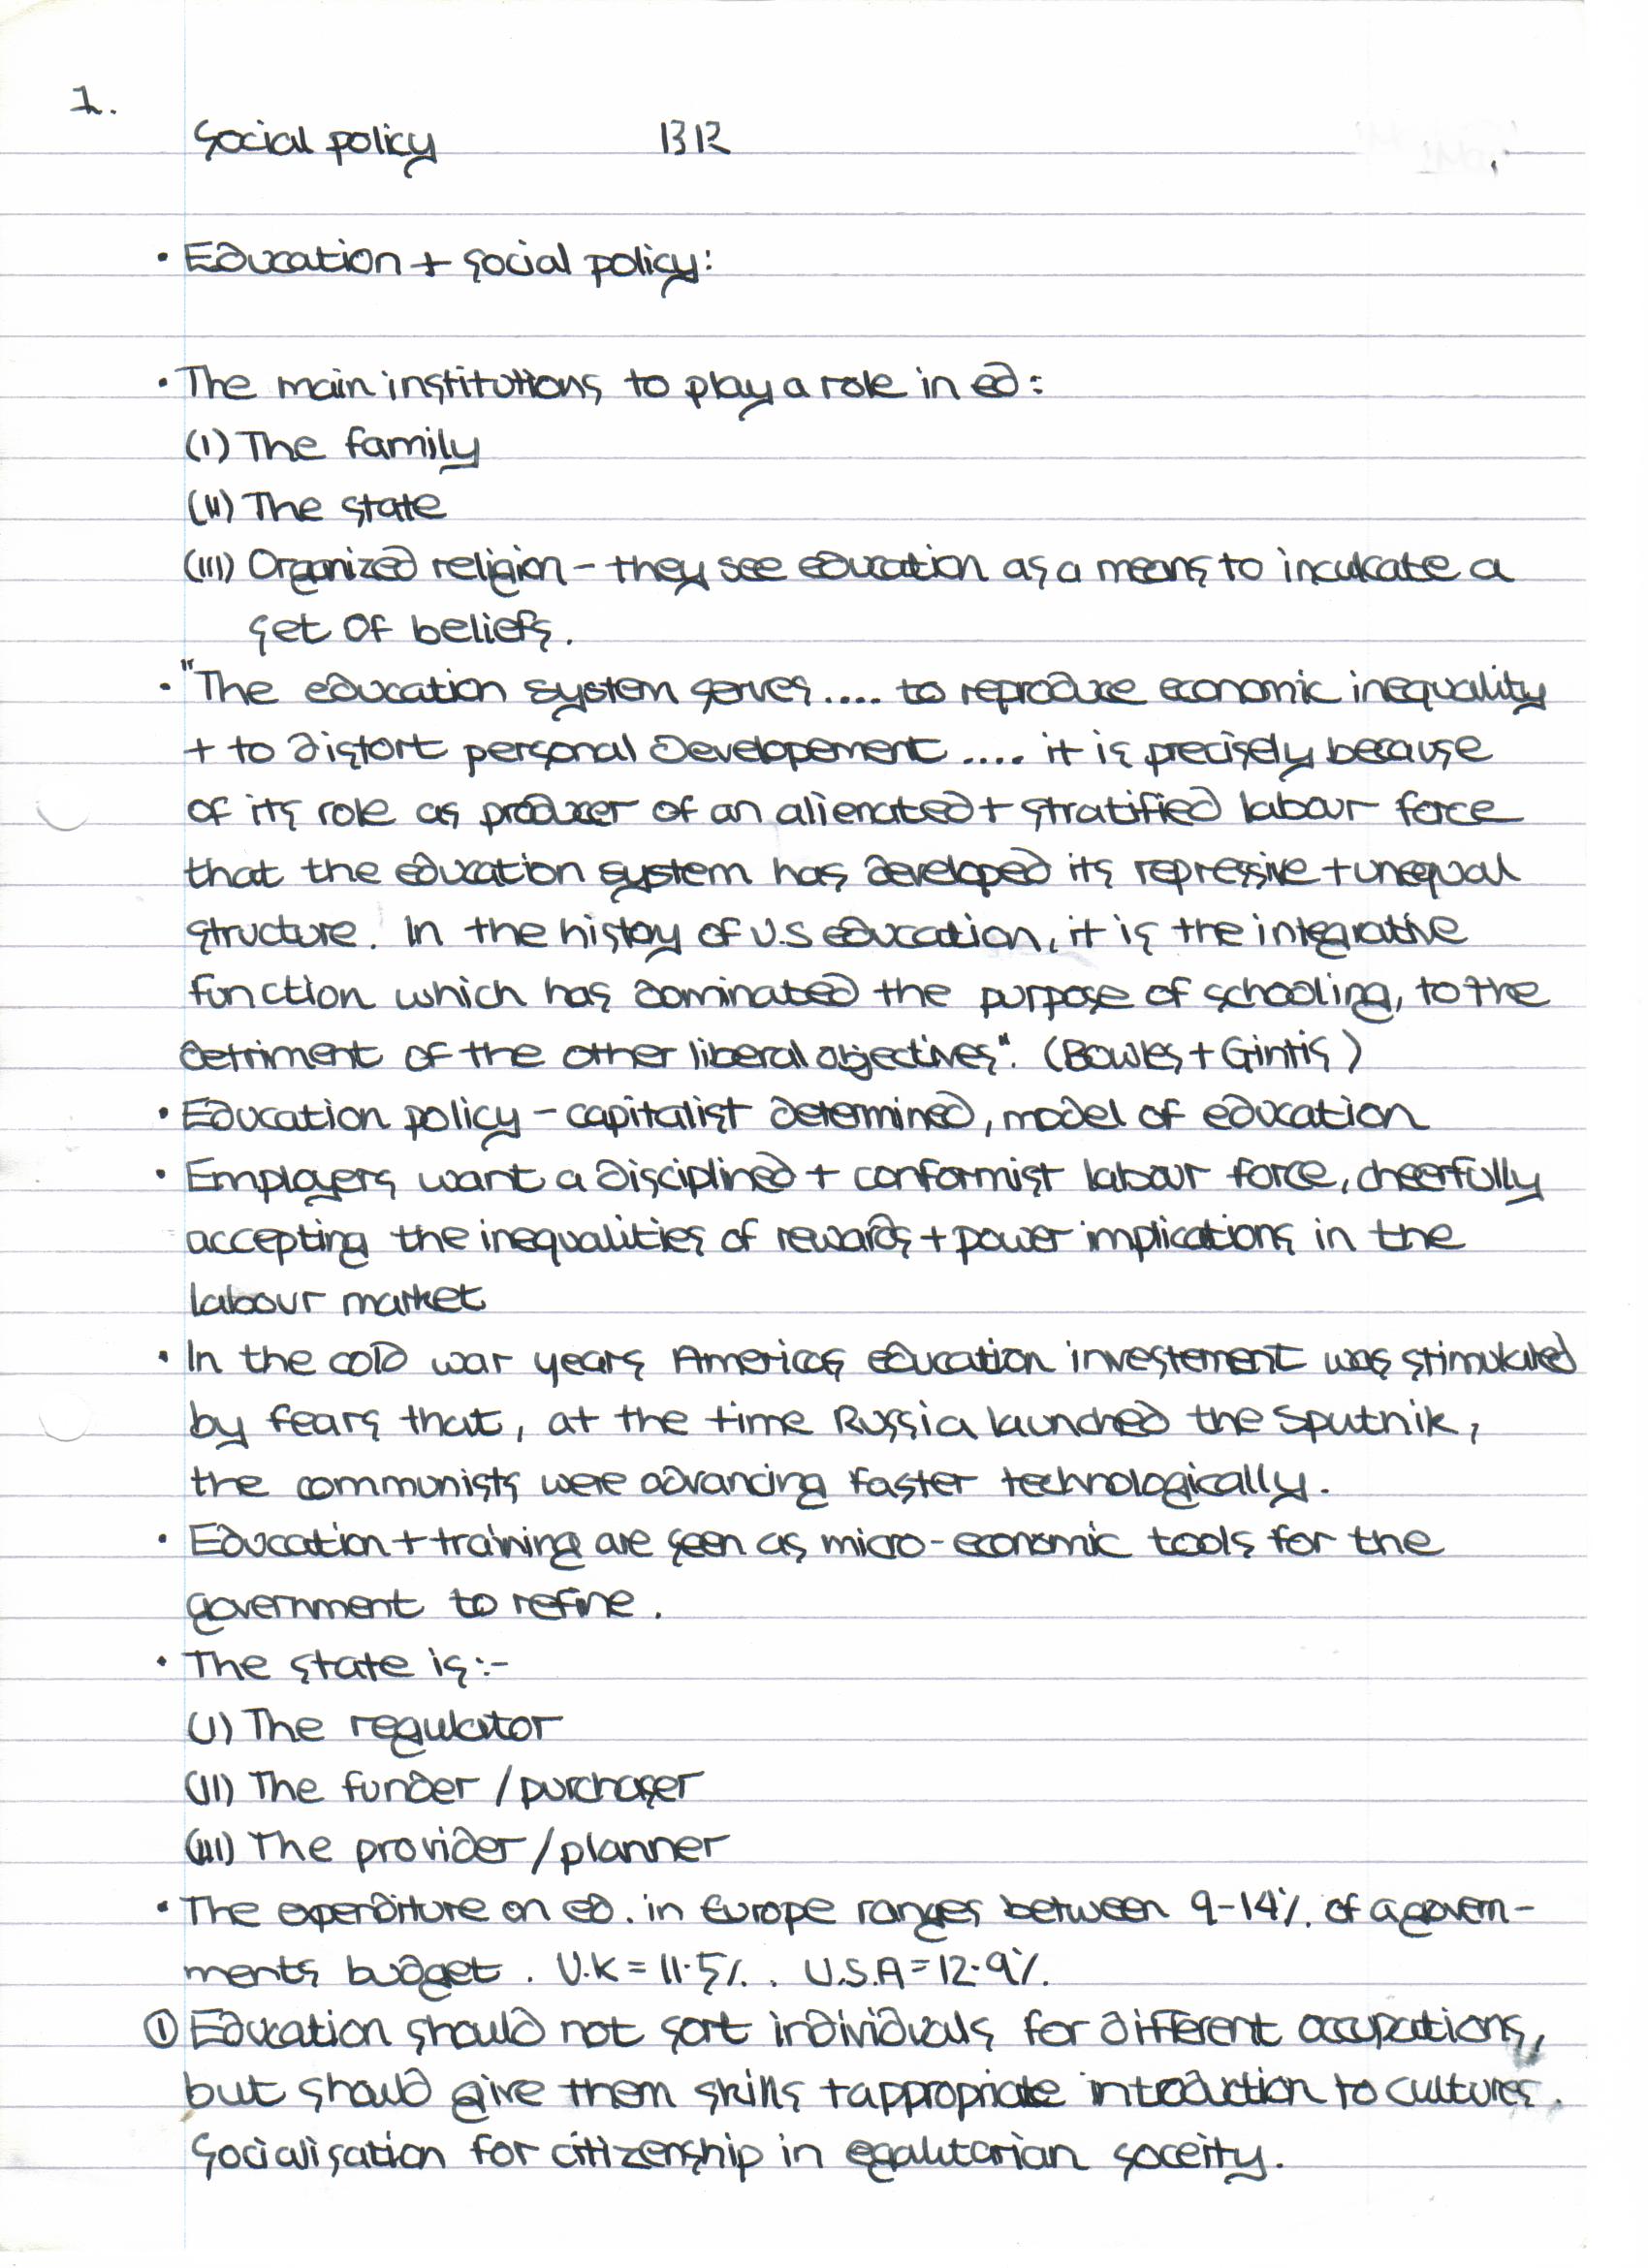 1.
Social policy 1312
• Education + social policy:
• The main institutions to play a role in ed:
(I) The family
(II) The state
(III) Organized religion - they see education as a means to inculcate a
set of beliefs.
• "The education system serves.... to reproduce economic inequality
+ to distort personal developement.... it is precisely because
of its role as producer of an alienated + stratified labour force
that the education system has developed its repressive + unequal
structure. In the histoy of U.S education, it is the integrative
function which has dominated the purpose of schooling, to the
detriment of the other liberal objectives". (Bowles + Gintis)
• Education policy - capitalist determined, model of education
• Employers want a disciplined + conformist labour force, cheerfully
accepting the inequalities of rewards + power implications in the
labour market
• In the cold war years Americas education investement was stimulated
by fears that, at the time Russia launched the Sputnik,
the communists were advancing faster technologically.
• Education + training are seen as micro-economic tools for the
government to refine.
• The state is:-
(I) The regulator
(II) The funder / purchaser
(III) The provider / planner
• The expenditure on ed. in Europe ranges between 9-14% of a govern-
ments budget. U.K = 11.5%. U.S.A = 12.9%.
① Education should not sort individuals for different occupations,
but should give them skills + appropriate introduction to cultures.
Socialisation for citizenship in egalitarian soceity.